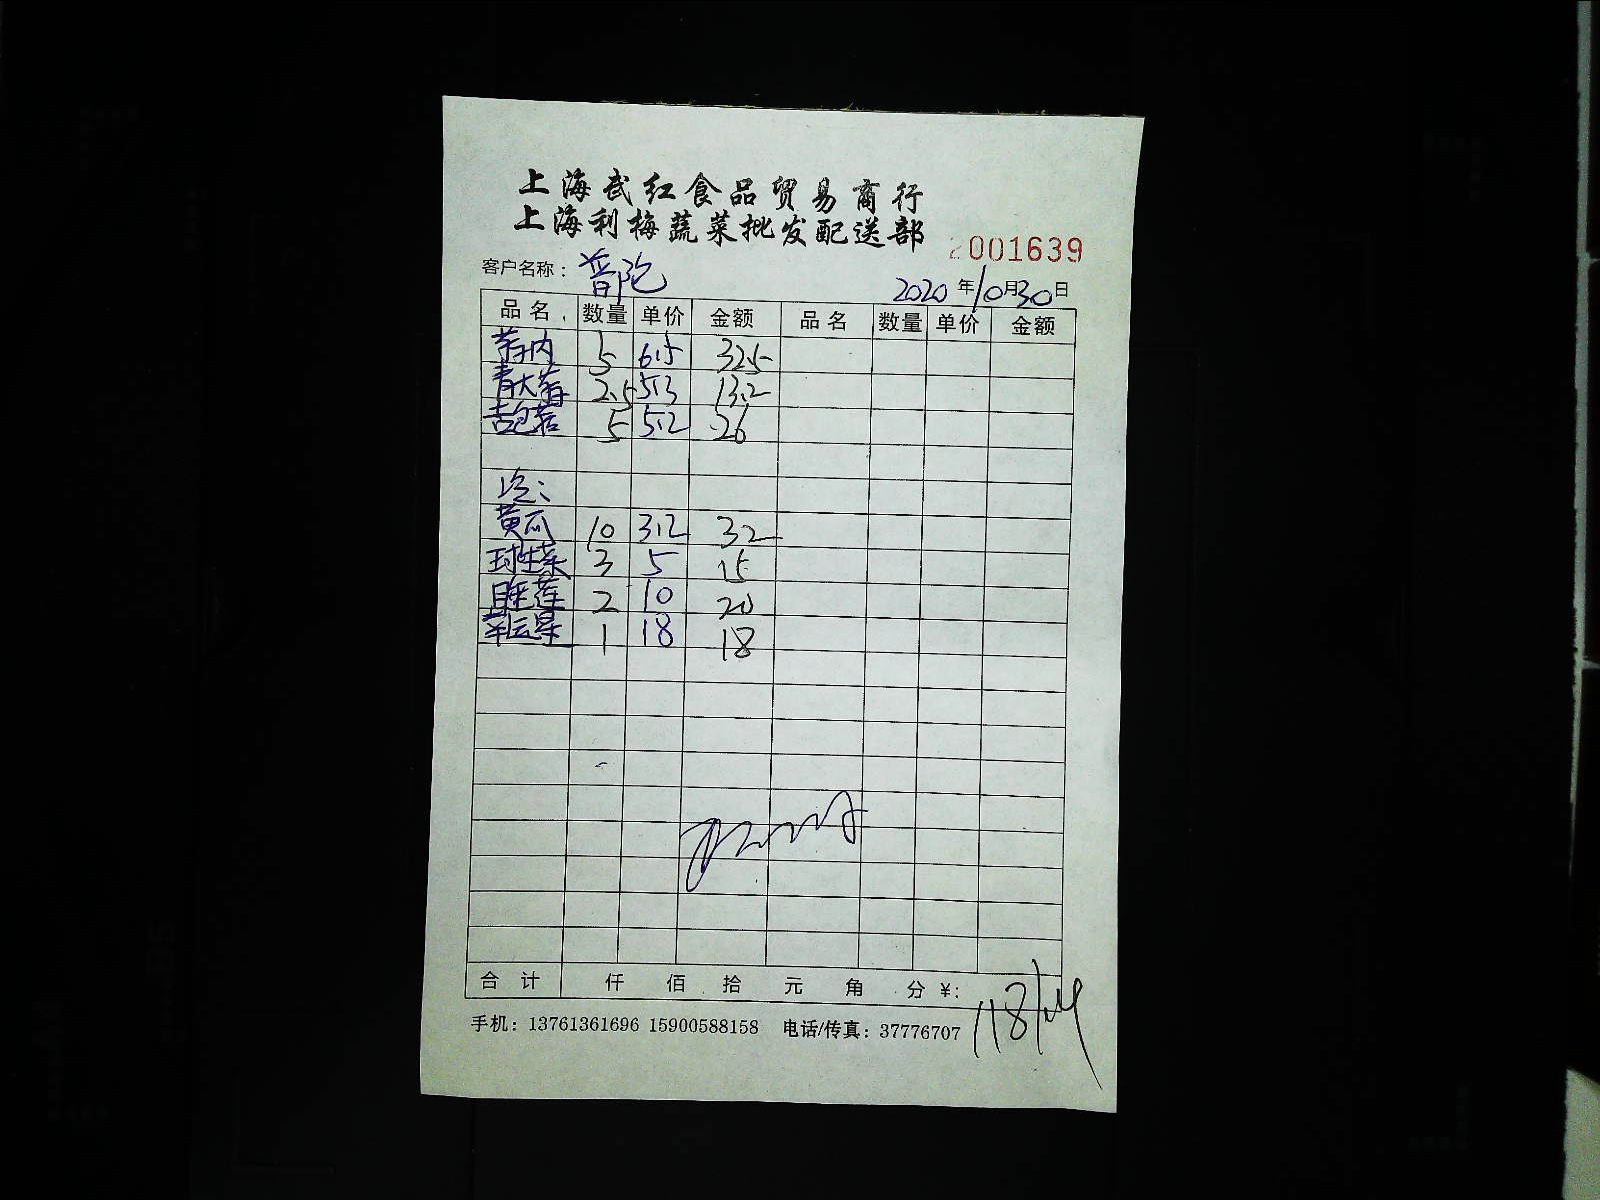 上海武红食品贸易商行
上海利梅蔬菜批发配送部
2001639
客户名称：普陀
2020年10月30日
品名 数量 单价 金额 品名 数量 单价 金额
5 6.5 32.5
2.5 5.3 13.2
5 5.2 26
黄瓜 10 3.2 32
球生菜 3 5 15
睡莲 2 10 20
幸运星 1 18 18
合计 仟 佰 拾 元 角 分 ¥:
手机：13761361696 15900588158 电话/传真：37776707